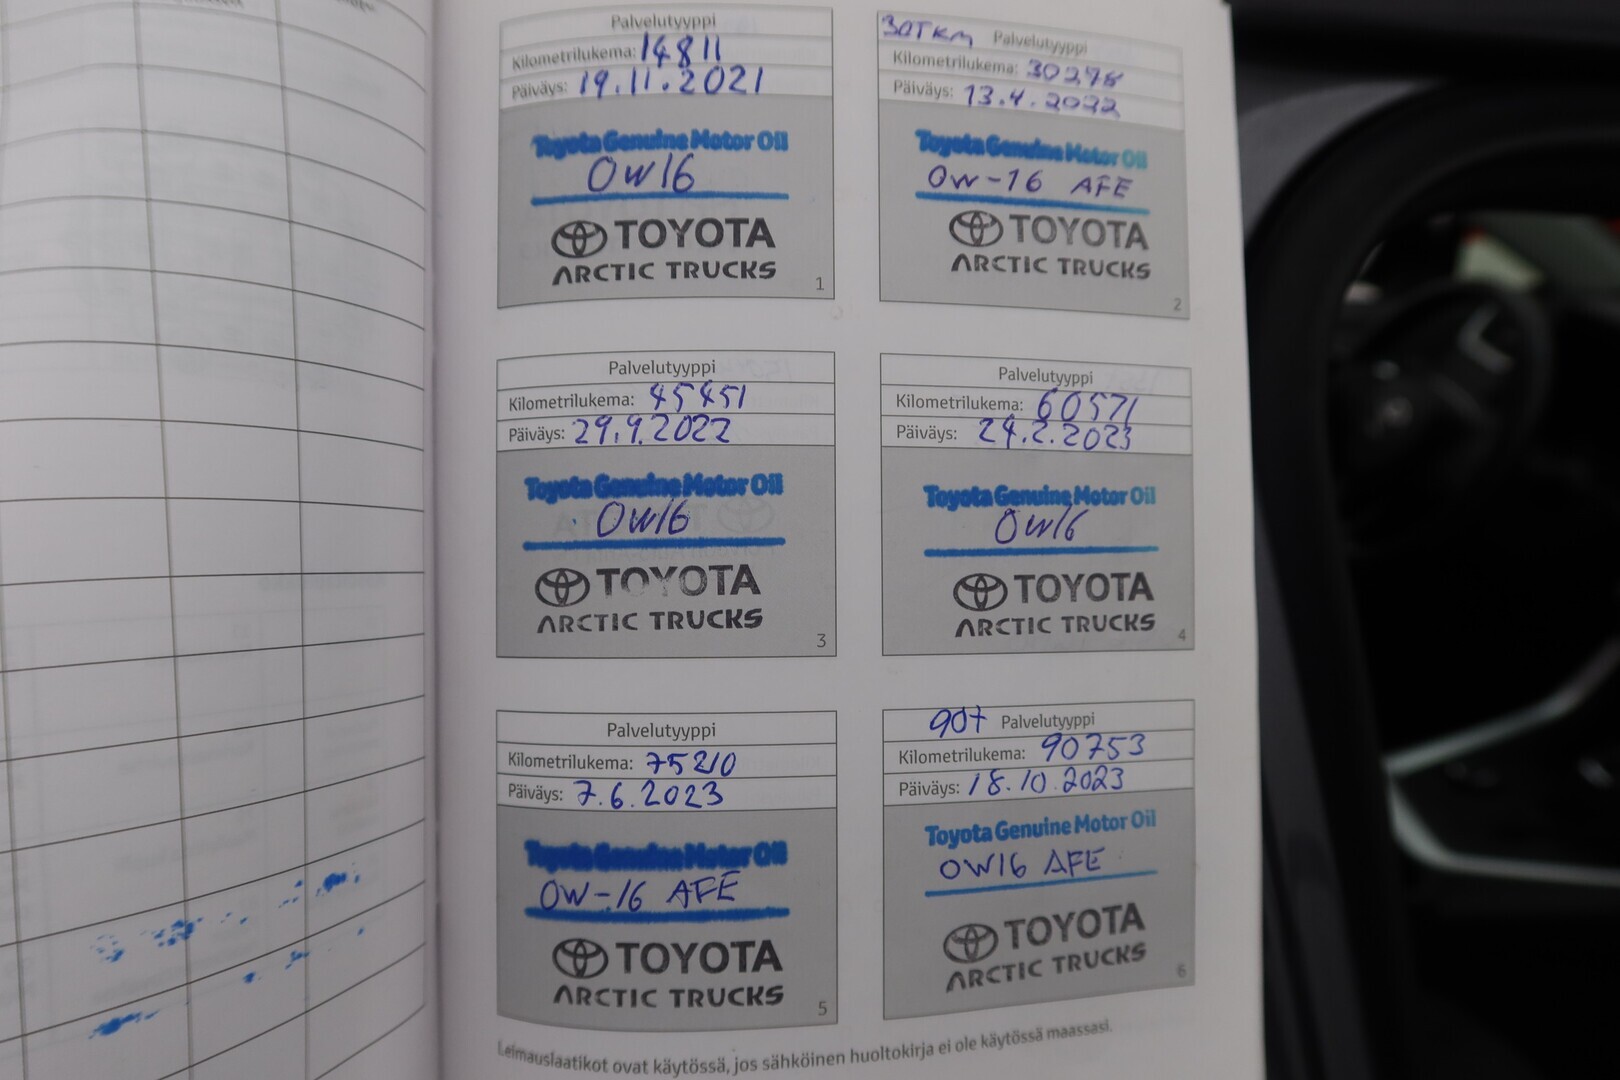 Palvelutyyppi
Kilometrilukema: 14811
Päiväys: 19.11.2021
Toyota Genuine Motor Oil
0W16
TOYOTA
ARCTIC TRUCKS
1
30TKM Palvelutyyppi
Kilometrilukema: 30278
Päiväys: 13.4.2022
Toyota Genuine Motor Oil
0W-16 AFE
TOYOTA
ARCTIC TRUCKS
2
Palvelutyyppi
Kilometrilukema: 45451
Päiväys: 29.9.2022
Toyota Genuine Motor Oil
0W16
TOYOTA
ARCTIC TRUCKS
3
Palvelutyyppi
Kilometrilukema: 60571
Päiväys: 24.2.2023
Toyota Genuine Motor Oil
0W16
TOYOTA
ARCTIC TRUCKS
4
Palvelutyyppi
Kilometrilukema: 75210
Päiväys: 7.6.2023
Toyota Genuine Motor Oil
0W-16 AFE
TOYOTA
ARCTIC TRUCKS
5
90t Palvelutyyppi
Kilometrilukema: 90753
Päiväys: 18.10.2023
Toyota Genuine Motor Oil
0W16 AFE
TOYOTA
ARCTIC TRUCKS
6
Leimauslaatikot ovat käytössä, jos sähköinen huoltokirja ei ole käytössä maassasi.